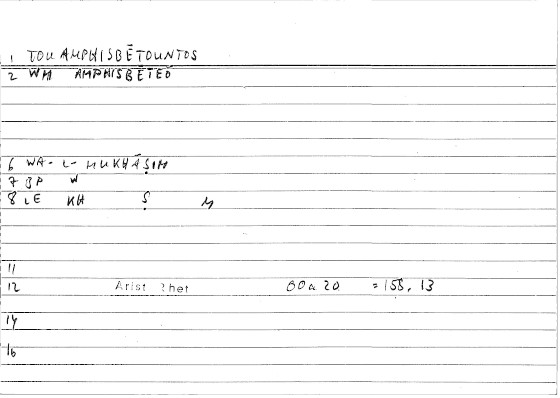 1 TOU AMPHISBĒTOUNTOS
2 WM AMPHISBĒTEŌ
6 WA-L-MUKHĀṢIM
7 BP W
8 LE KH Ṣ M
11
12 Arist Rhet 60a20 =158,13
14
16